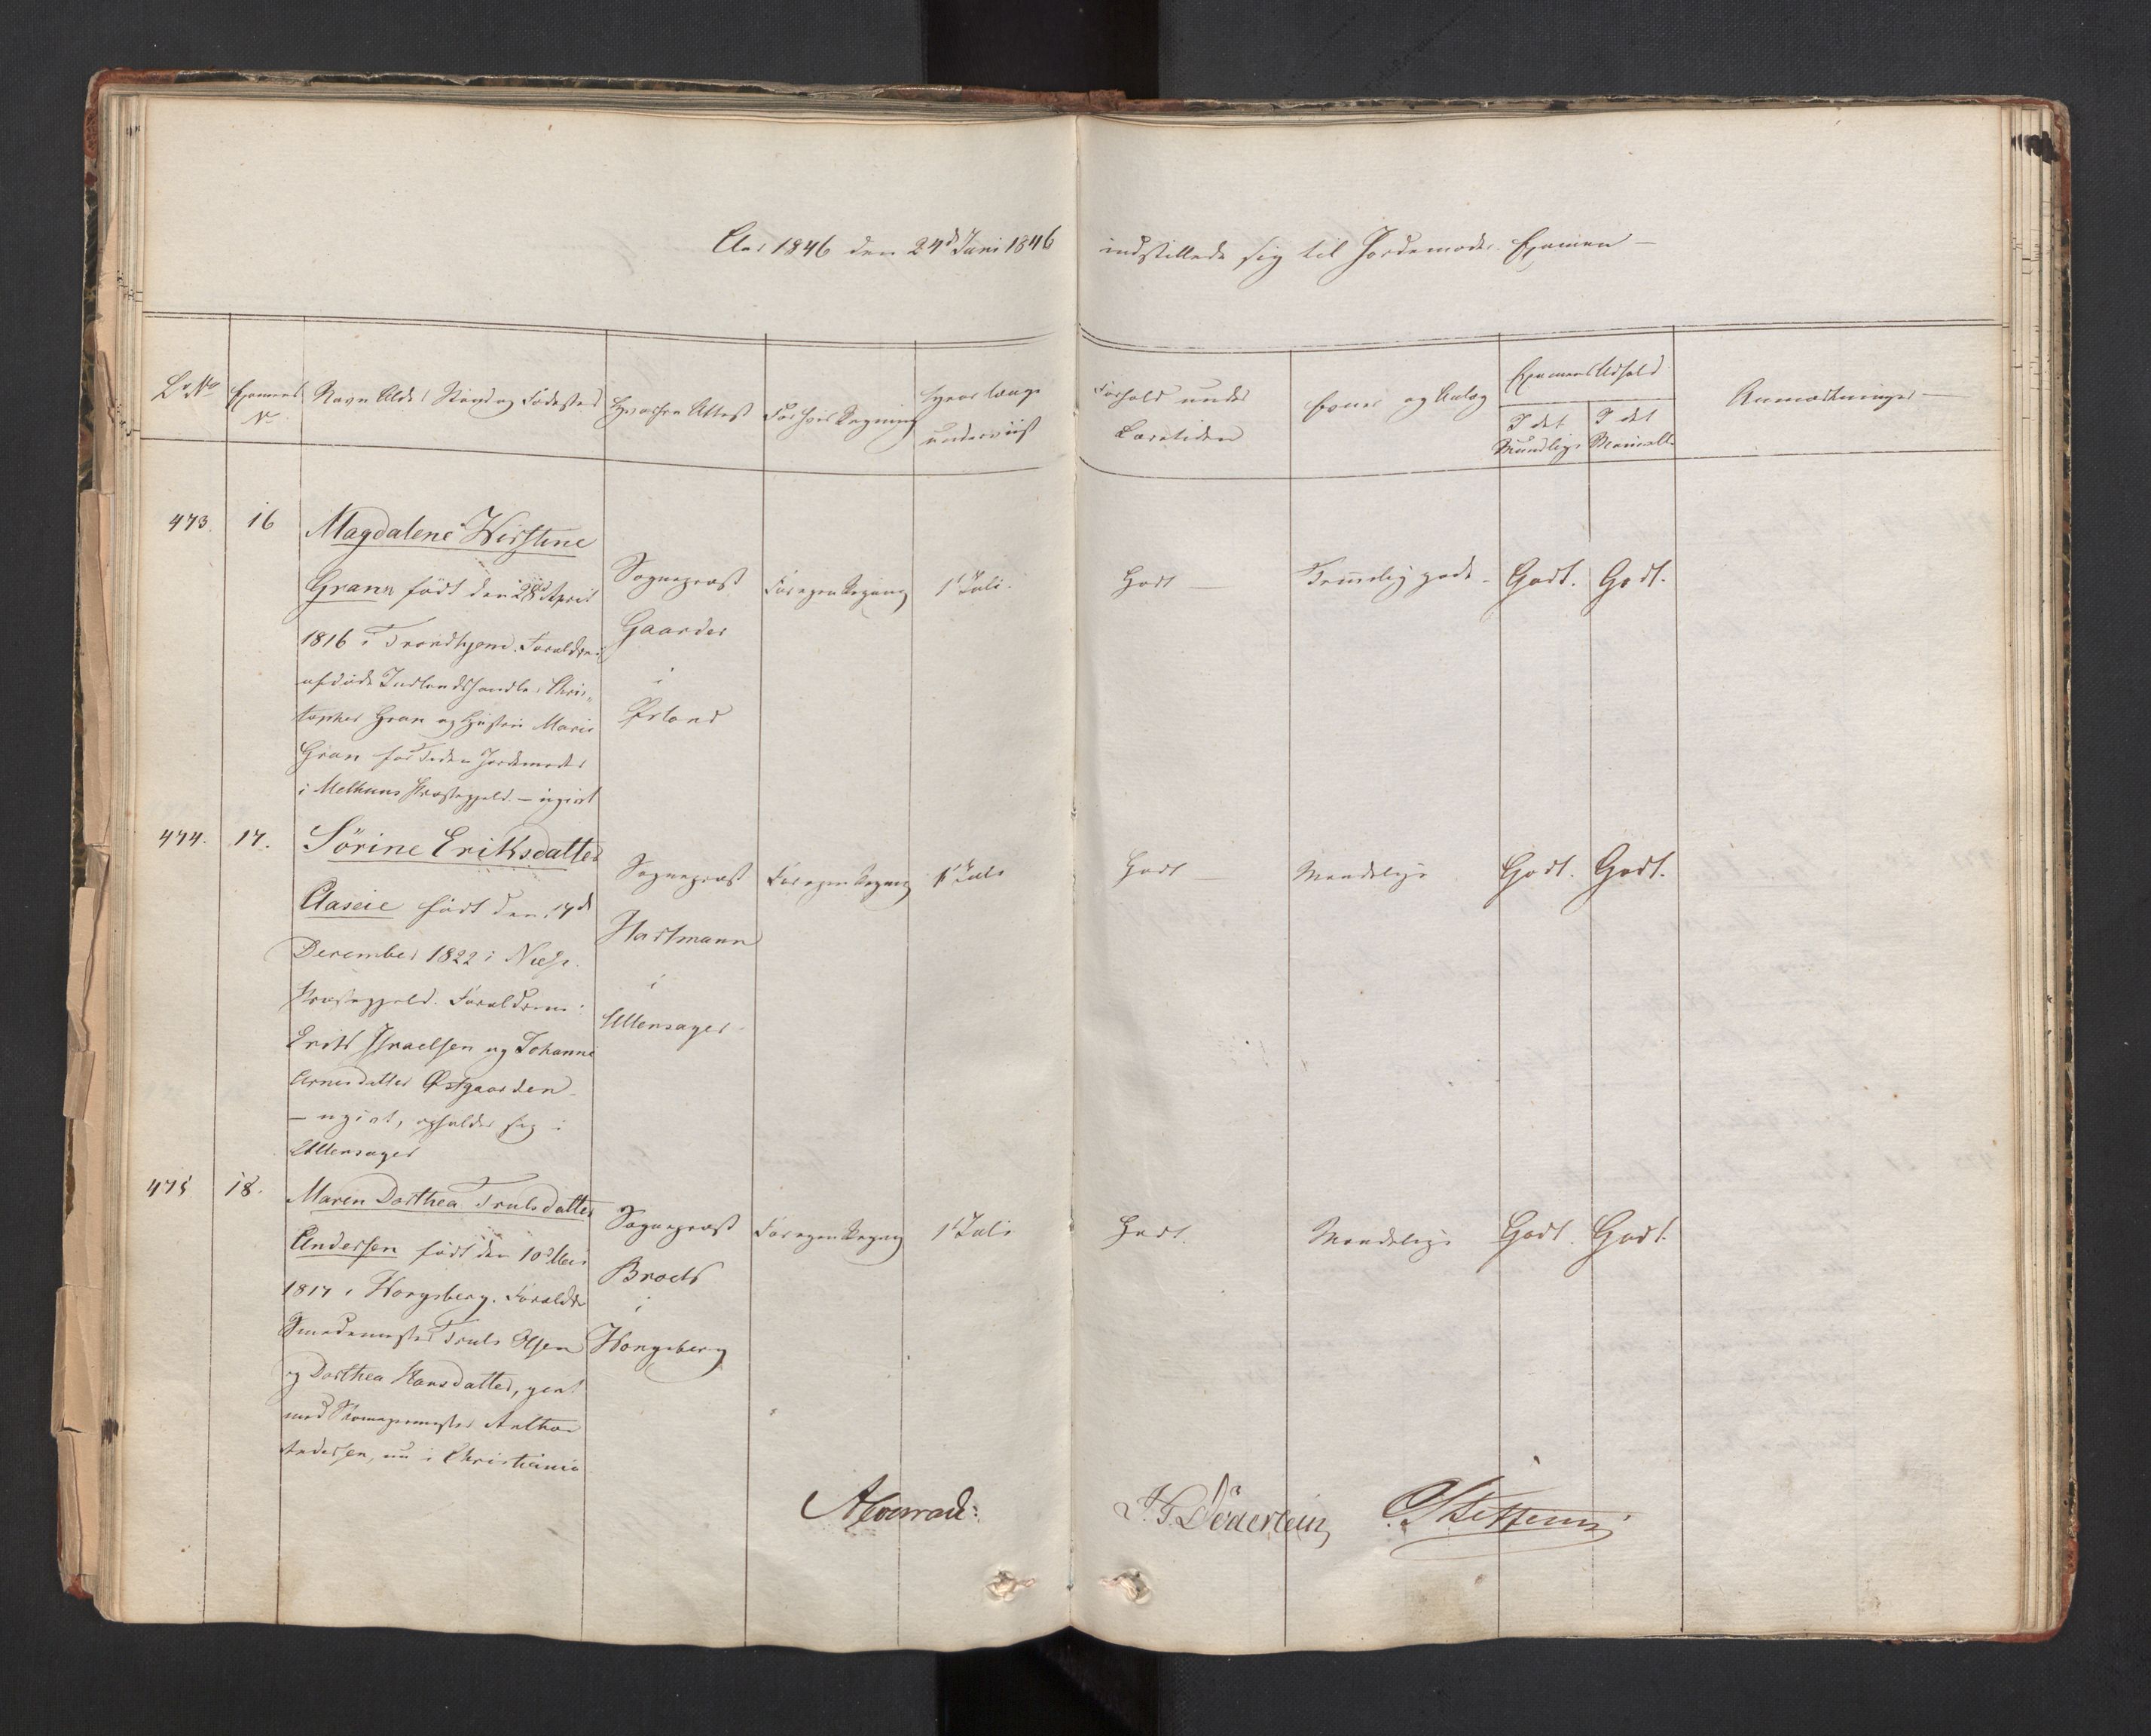 Aar 1846 den 24d Juni 1846 indstillede sig til Jordemoder Examen –
Lb No Examens No Navn Alder Stand og Fødested Hvorfra Attest For hvis Regning Hvor længe underviist Forhold under Læretiden Evner og Anlæg Examens Udfald Anmærkninger –
I det Mundlige I det Manuelle
473. 16 Magdalene Kirstine
Grann født den 28d April
1816 i Trondhjem. Forældre:
afdøde Indlandshandler Chris„
topher Gran og Hustru Marie
Gran for Tiden Jordemoder
i Melhuus Præstegjeld – ugivt
Sognepræst
Gaarder
i
Ørland
For egen Regning
1 Juli.
Godt –
Temmelig gode –
Godt. Godt.
474. 17. Sörine Eriksdatter
Aaseie født den 17d
December 1822 i Næs
Præstegjeld. Forældrene:
Erik Israelsen og Johanne
Arnesdatter Østgaarden
– ugivt, opholder sig i
Ullensager
Sognepræst
Hartmann
i
Ullensager
For egen Regning
1 Juli
Godt –
Maadelige
Godt. Godt.
475 18. Maren Dorthea Trulsdatter
Andersen født den 10d Mai
1817 i Kongsberg. Forældre
Smedemester Truls Olsen
og Dorthea Hansdatter, givt
med Skomagermester Anthon
Andersen, nu i Christiania
Sognepræst
Brock
i
Kongsberg
For egen Regning
1 Juli
Godt.
Maadelige
Godt. Godt.
AConrad: Döderlein